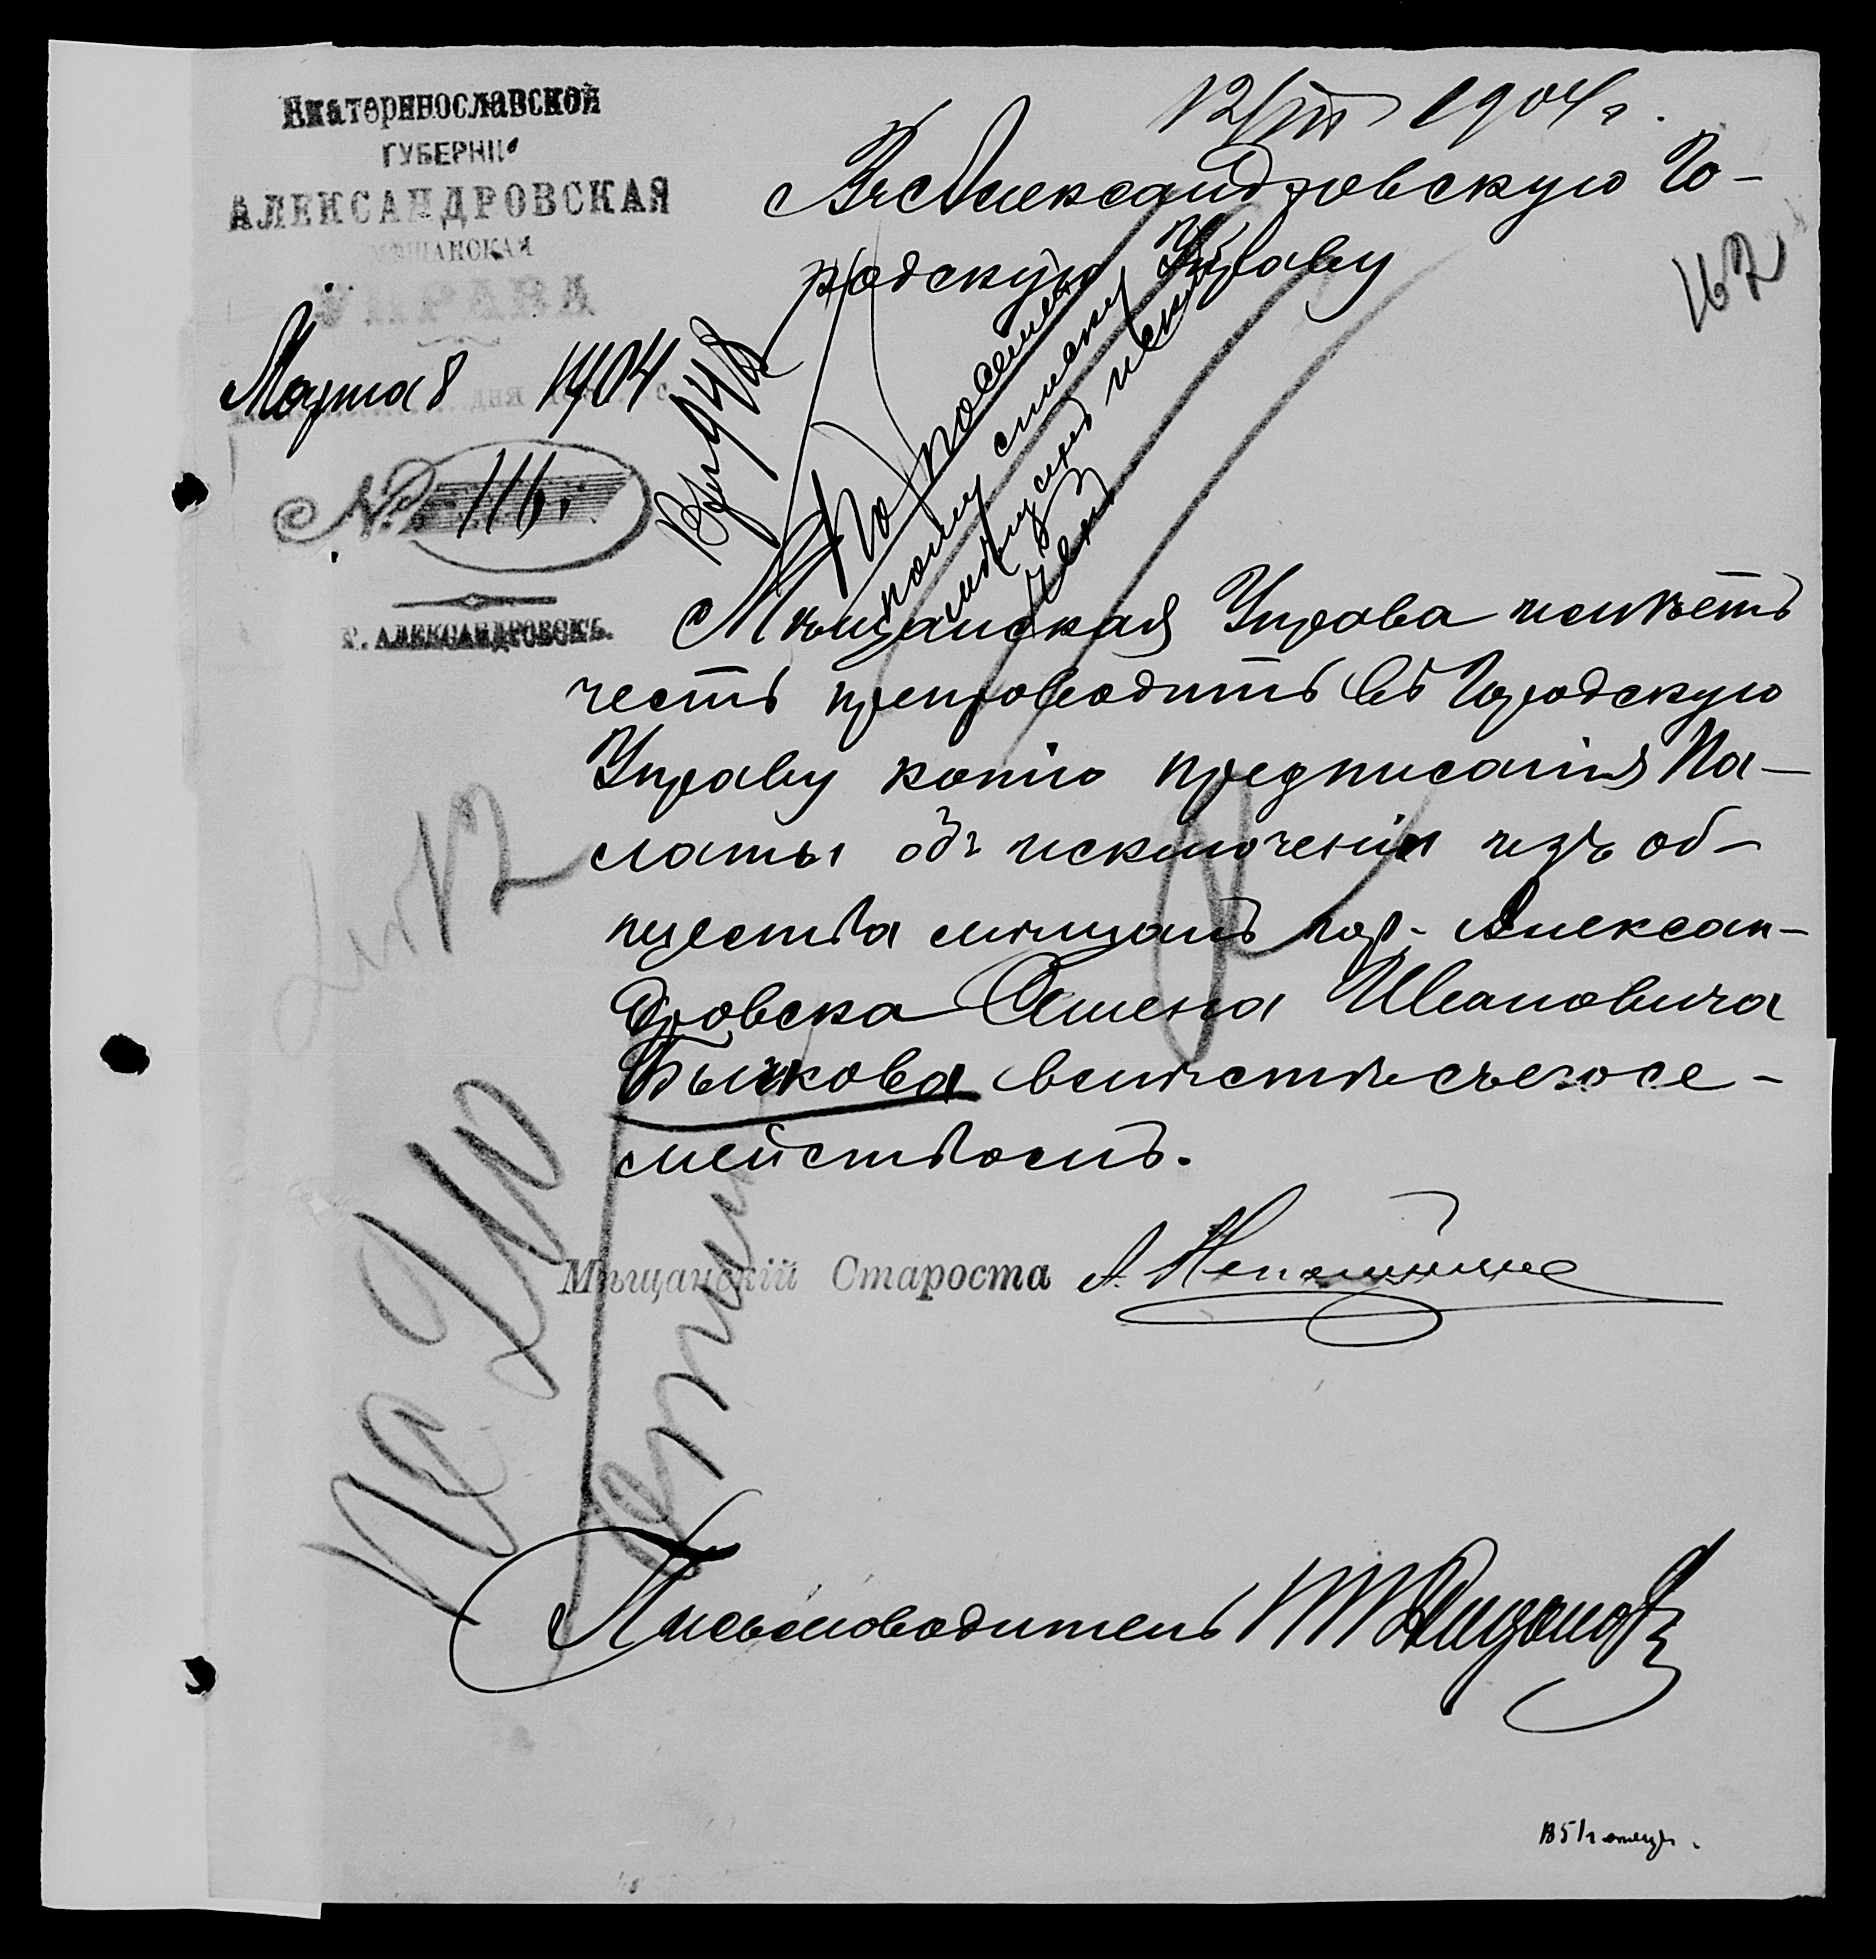 Екатеринославской
ГУБЕРНІИ
АЛЕКСАНДРОВСКАЯ
МѢЩАНСКАЯ
УПРАВА
Марта 8 дня 1904
№ 116.
Г. АЛЕКСАНДРОВСКЪ.
12/III 1904 г.
Въ Александровскую Го-
родскую Управу
162
По посемей
ному списку
мѣщанъ исклю
ченъ
Мѣщанская Управа имѣетъ
честь препроводить въ Городскую
Управу копію предписанія Па-
латы объ исключеніи изъ об-
щества мѣщанъ гор. Алексан-
дровска Семена Ивановича
Бычкова вмѣстѣ съ его се-
мействомъ.
Мѣщанскій Староста А.
Письмоводитель